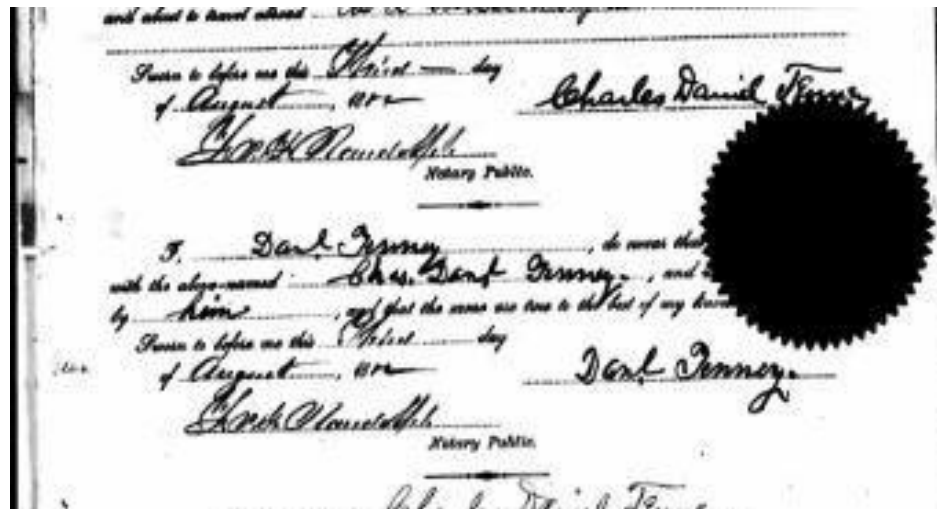 and about to travel abroad
Sworn to before me this Third day
of August, 188
Charles Daniel Tenney
Notary Public.
I, Danl. Tenney, do swear that
with the above-named Chas. Danl Tenney, and
by him, and that the same are true to the best of my
Sworn to before me this Third day
of August, 188
Danl. Tenney.
Notary Public.
Charles Daniel Tenney